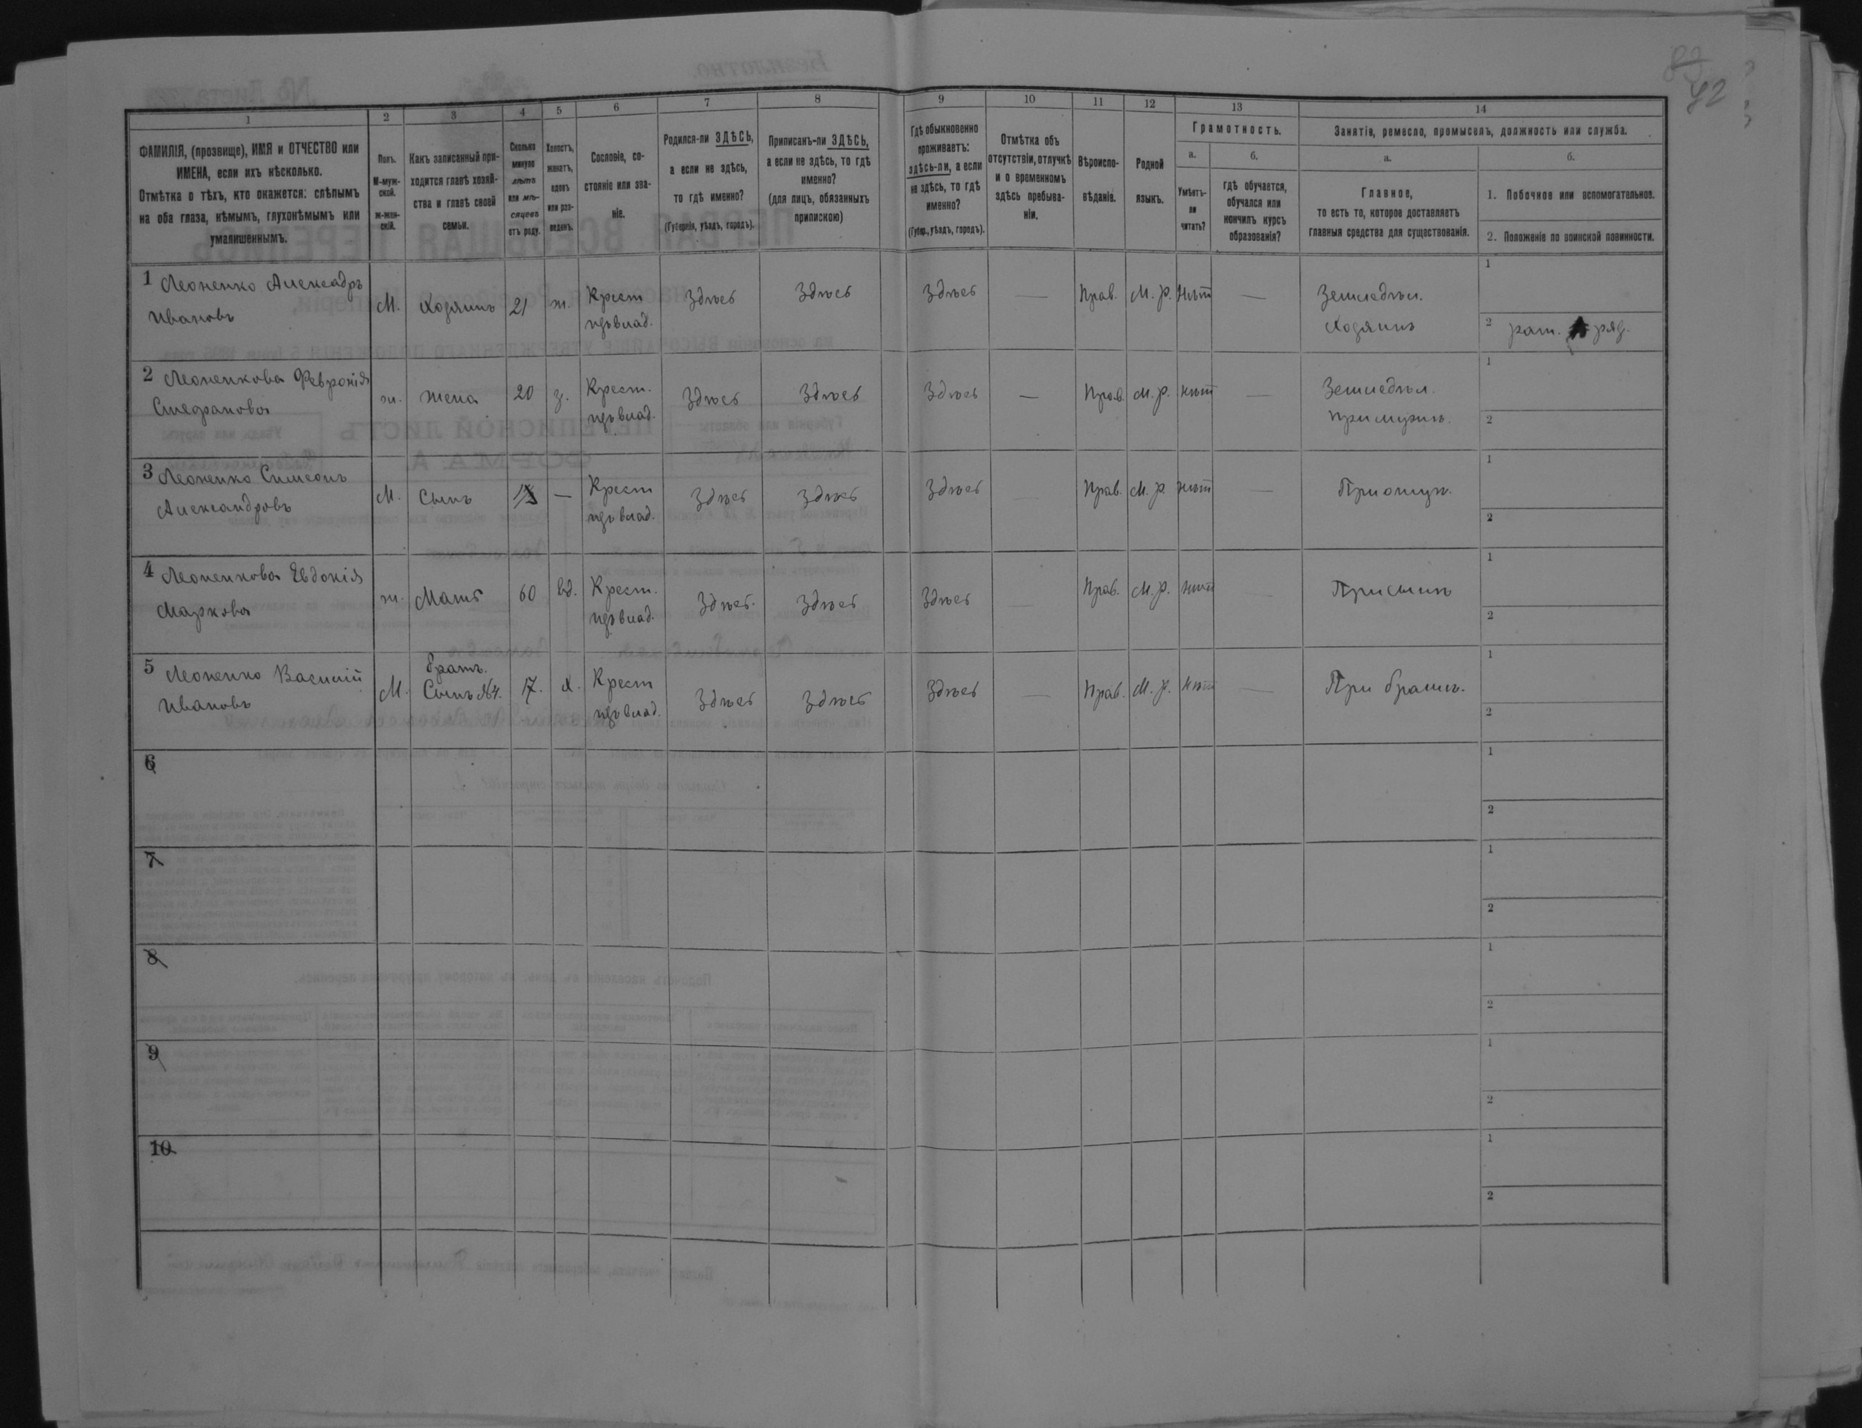 82
42
1
2
3
4
5
6
7
8
9
10
11
12
13
14
ФАМИЛІЯ, (прозвище), ИМЯ и ОТЧЕСТВО или
ИМЕНА, если ихъ нѣсколько.
Отмѣтка о тѣхъ, кто окажется: слѣпымъ
на оба глаза, нѣмымъ, глухонѣмымъ или
умалишеннымъ.
Полъ.
М-муж-
ской.
ж-жен-
скій.
Какъ записанный при-
ходится главѣ хозяй-
ства и главѣ своей
семьи.
Сколько
минуло
лѣтъ
или мѣ-
сяцевъ
отъ роду.
Холостъ,
женатъ,
вдовъ
или раз-
веденъ.
Сословіе, со-
стояніе или зва-
ніе.
Родился-ли ЗДѢСЬ,
а если не здѣсь,
то гдѣ именно?
(Губернія, уѣздъ, городъ).
Приписанъ-ли ЗДѢСЬ,
а если не здѣсь, то гдѣ
именно?
(для лицъ, обязанныхъ
припискою)
Гдѣ обыкновенно
проживаетъ:
здѣсь-ли, а если
не здѣсь, то гдѣ
именно?
(Губер., уѣздъ, городъ).
Отмѣтка объ
отсутствіи, отлучкѣ
и о временномъ
здѣсь пребыва-
ніи.
Вѣроиспо-
вѣданіе.
Родной
языкъ.
Грамотность.
а.
Умѣетъ-
ли
читать?
б.
гдѣ обучается,
обучался или
кончилъ курсъ
образованія?
Занятіе, ремесло, промыселъ, должность или служба.
а.
Главное,
то есть то, которое доставляетъ
главныя средства для существованія.
б.
1. Побочное или вспомогательное.
2. Положеніе по воинской повинности.
1 Леоненко Александръ
Ивановъ
М. Хозяинъ 21 ж. Крест Здѣсь Здѣсь Здѣсь — Прав. М. р. нѣт — Земледѣл.
Хозяинъ
1
2 рат. ряд.
2 Леоненкова Февронія
Стефанова
ж. Жена 20 з. Крест. Здѣсь Здѣсь Здѣсь — Прав. М. р. нѣт — Земледѣл.
При мужѣ.
1
2
3 Леоненко Симеонъ
Александровъ
М. Сынъ — Крест Здѣсь Здѣсь Здѣсь — Прав. М. р. нѣт — При отцѣ.
1
2
4 Леоненкова Евдокія
Маркова
ж. Мать 60 вд. Крест. Здѣсь. Здѣсь Здѣсь — Прав. М. р. нѣт — При сынѣ
1
2
5 Леоненко Василій
Ивановъ
братъ.
М. Сынъ №4. 17. х. Крест Здѣсь Здѣсь Здѣсь — Прав. М. р. нѣт — При братѣ.
1
2
6
1
2
7
1
2
8
1
2
9
1
2
10
1
2